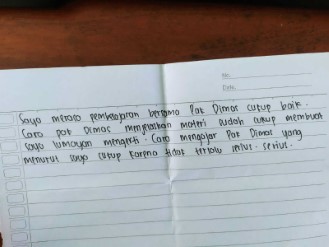 No.
Date.
Saya merasa pembelajaran bersama Pak Dimas cukup baik.
Cara pak Dimas menjelaskan materi sudah cukup membuat
saya lumayan mengerti. Cara mengajar Pak Dimas yang
menurut saya cukup karena tidak terlalu serius.